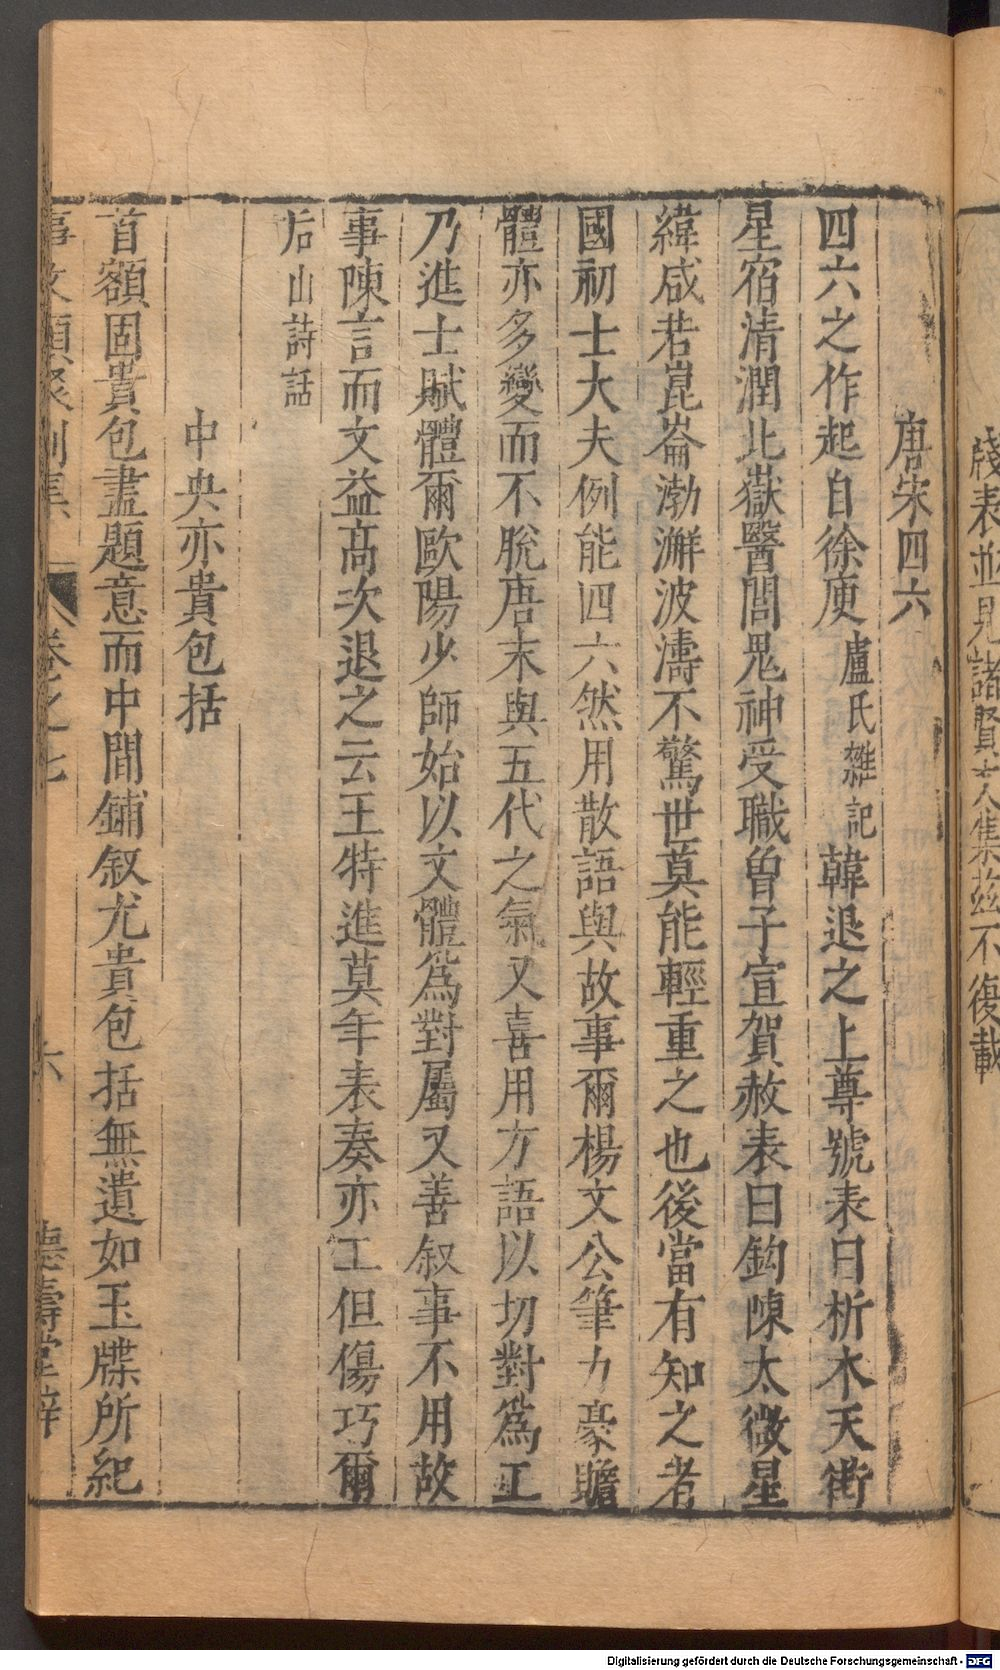 牋表並見諸賢文集茲不復載
唐宋四六
四六之作起自徐庾盧氏雜記韓退之上尊號表曰析木天街
星宿清潤北嶽醫閭鬼神受職曾子宣賀赦表曰鈎陳太微星
緯咸若崑崙渤澥波濤不驚世莫能輕重之也後當有知之者
國初士大夫例能四六然用散語與故事爾楊文公筆力豪贍
體亦多變而不脫唐末與五代之氣又喜用方語以切對爲工
乃進士賦體爾歐陽少師始以文體爲對屬又善叙事不用故
事陳言而文益髙次退之云王特進莫年表奏亦工但傷巧爾
后山詩話
中央亦貴包括
首額固貴包盡題意而中間鋪叙尤貴包括無遺如玉牒所紀
事文類聚別集
卷之七
六
德壽堂梓
Digitalisierung gefördert durch die Deutsche Forschungsgemeinschaft - DFG